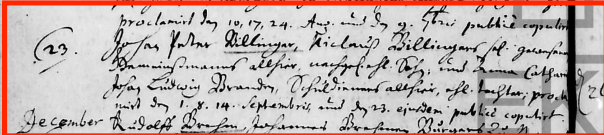 proclamirt den 10, 17, 24. Aug. und den 9. 7bris publicè copulirt
(23. Johan Peter Billinger, Niclaus Billingers sel. gewesenen
Gemeinsmanns allhier, nachgel. ehl. Sohn; und Anna Cathar
Johan Ludwig Branden, Schuldieners allhier, ehl. tochter; procla
mirt den 1. 8. 14. Septembris, und den 23. ejusdem publicè copulirt.
December Rudolff Johannes Burgers